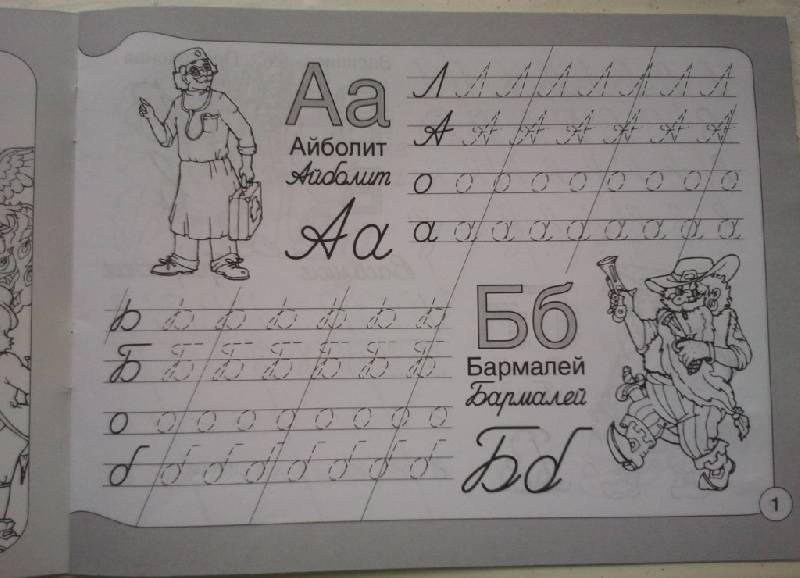 Аа
Айболит
Айболит
Аа
Л Л Л Л Л Л Л Л
А А А А А А А А
о о о о о о о о о
а а а а а а а а а
Бб
Бармалей
Бармалей
Бб
Ь Ь Ь Ь Ь Ь Ь
Б Б Б Б Б Б Б
о о о о о о о о о
б б б б б б б б
1